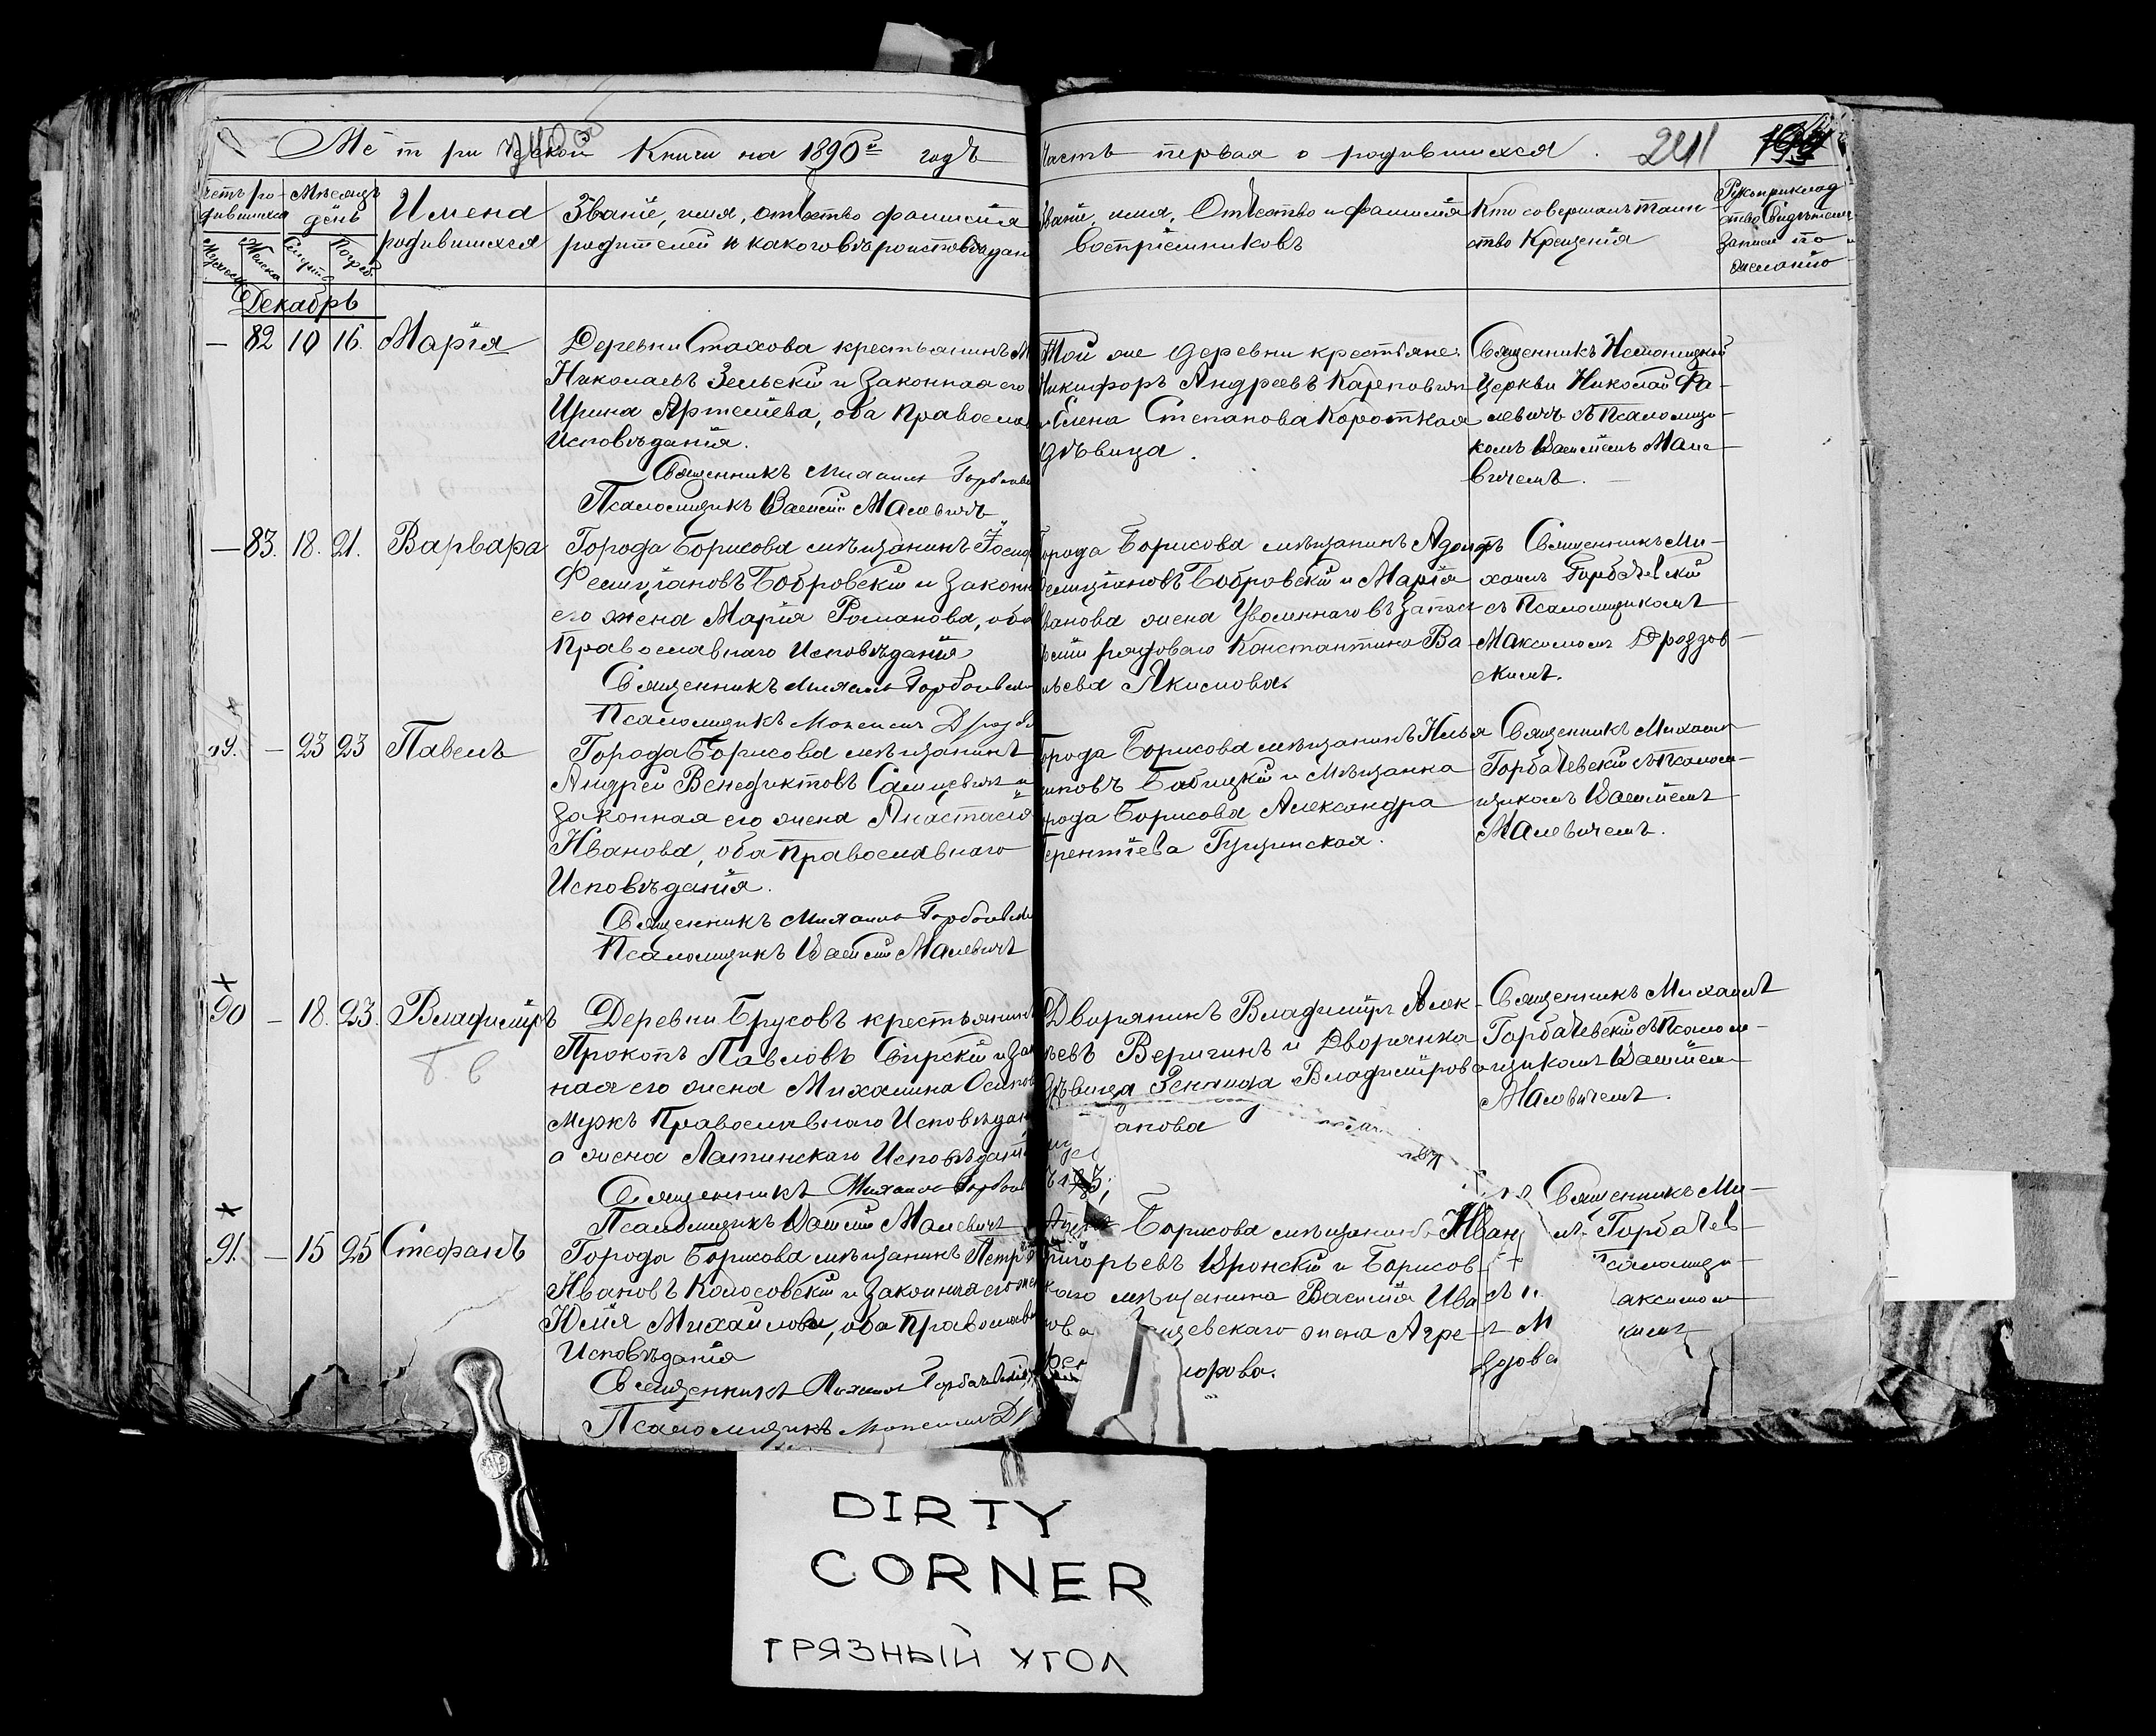 Метрической Книги на 1890й годъ
Часть первая о родившихся. 241
Мѣсяцъ
день
Имена
родившихся
Званіе, имя, отчество фамилія
родителей и какого вѣроисповѣдан
Званіе, имя, Отчество и фамилія
воспріемниковъ
Кто совершалъ таин
ство Крещенія
Рукоприклад
ство Свидѣтелей
записи по
желанію
Декабрь
— 82 10 16. Марія
Деревни Стахова крестьянинъ
Николаевъ Зельскій и законная его
Ирина Артеміева, оба Православ
Исповѣданія.
Священникъ Михаилъ
Псаломщикъ Василій Малевичъ
Той же деревни крестьяне:
Никифоръ Андреевъ Карповичъ
и Елена Степанова Короткая
дѣвица.
Священникъ
церкви Николай Фа-
левичъ съ Псаломщи-
комъ Василіемъ Мале-
вичемъ.
— 83. 18. 21. Варвара
Города Борисова мѣщанинъ Іосиф
Фелиціановъ Бобровскій и законн
его жена Марія Романова, оба
Православнаго Исповѣданія
Священникъ Михаилъ Горбачевскі
Псаломщикъ Максимъ Дрозд
Города Борисова мѣщанинъ Адольфъ
Фелиціановъ Бобровскій и Марія
Иванова жена Уволеннаго въ запас
арміи рядоваго Константина Ва-
сильева Якимова.
Священникъ Ми-
хаилъ Горбачевскій
съ Псаломщикомъ
Максимомъ Дроздов-
скимъ.
89. — 23 23 Павелъ
Города Борисова мѣщанинъ
Андрей Венедиктовъ и
законная его жена Анастасія
Иванова, оба Православнаго
Исповѣданія.
Священникъ Михаилъ Горбачевскі
Псаломщикъ Василій Малевичъ
Города Борисова мѣщанинъ Илья
Бабицкій и Мѣщанка
города Борисова Александра
Терентіева Гущинская.
Священникъ Михаилъ
Горбачевскій съ Псалом-
щикомъ Василіемъ
Малевичемъ.
90 — 18. 23. Владиміръ
Деревни Брусовъ крестьянинъ
Прокопъ Павловъ Сирскій и зак
ная его жена Михалина Осипов
Мужъ Православнаго Исповѣдан
а жена Латинскаго Исповѣдані
Священникъ Михаилъ Горбач
Псаломщикъ Василій Малевичъ
Дворянинъ Владиміръ Алек-
ѣевъ Веригинъ и Дворянка
дѣвица Владимірова
анова
Священникъ Михаилъ
Горбачевскій съ Псалом-
щикомъ Василіем
Малевичемъ.
91. — 15 25 Стефанъ
Города Борисова мѣщанинъ Петръ
Ивановъ Колосовскій и законная его жен
Юлія Михайлова, оба Православ
Исповѣданія
Священникъ Михаилъ Горбачевскій
Псаломщикъ Максимъ Др
Борисова мѣщанинъ Иван
Григорьевъ Вронскій и Борисов
каго мѣщанина Василія Ива
нова щевскаго жена Агре
Священникъ Ми-
лъ Горбачев-
Псаломщи-
аксимом
DIRTY
CORNER
ГРЯЗНЫЙ УГОЛ